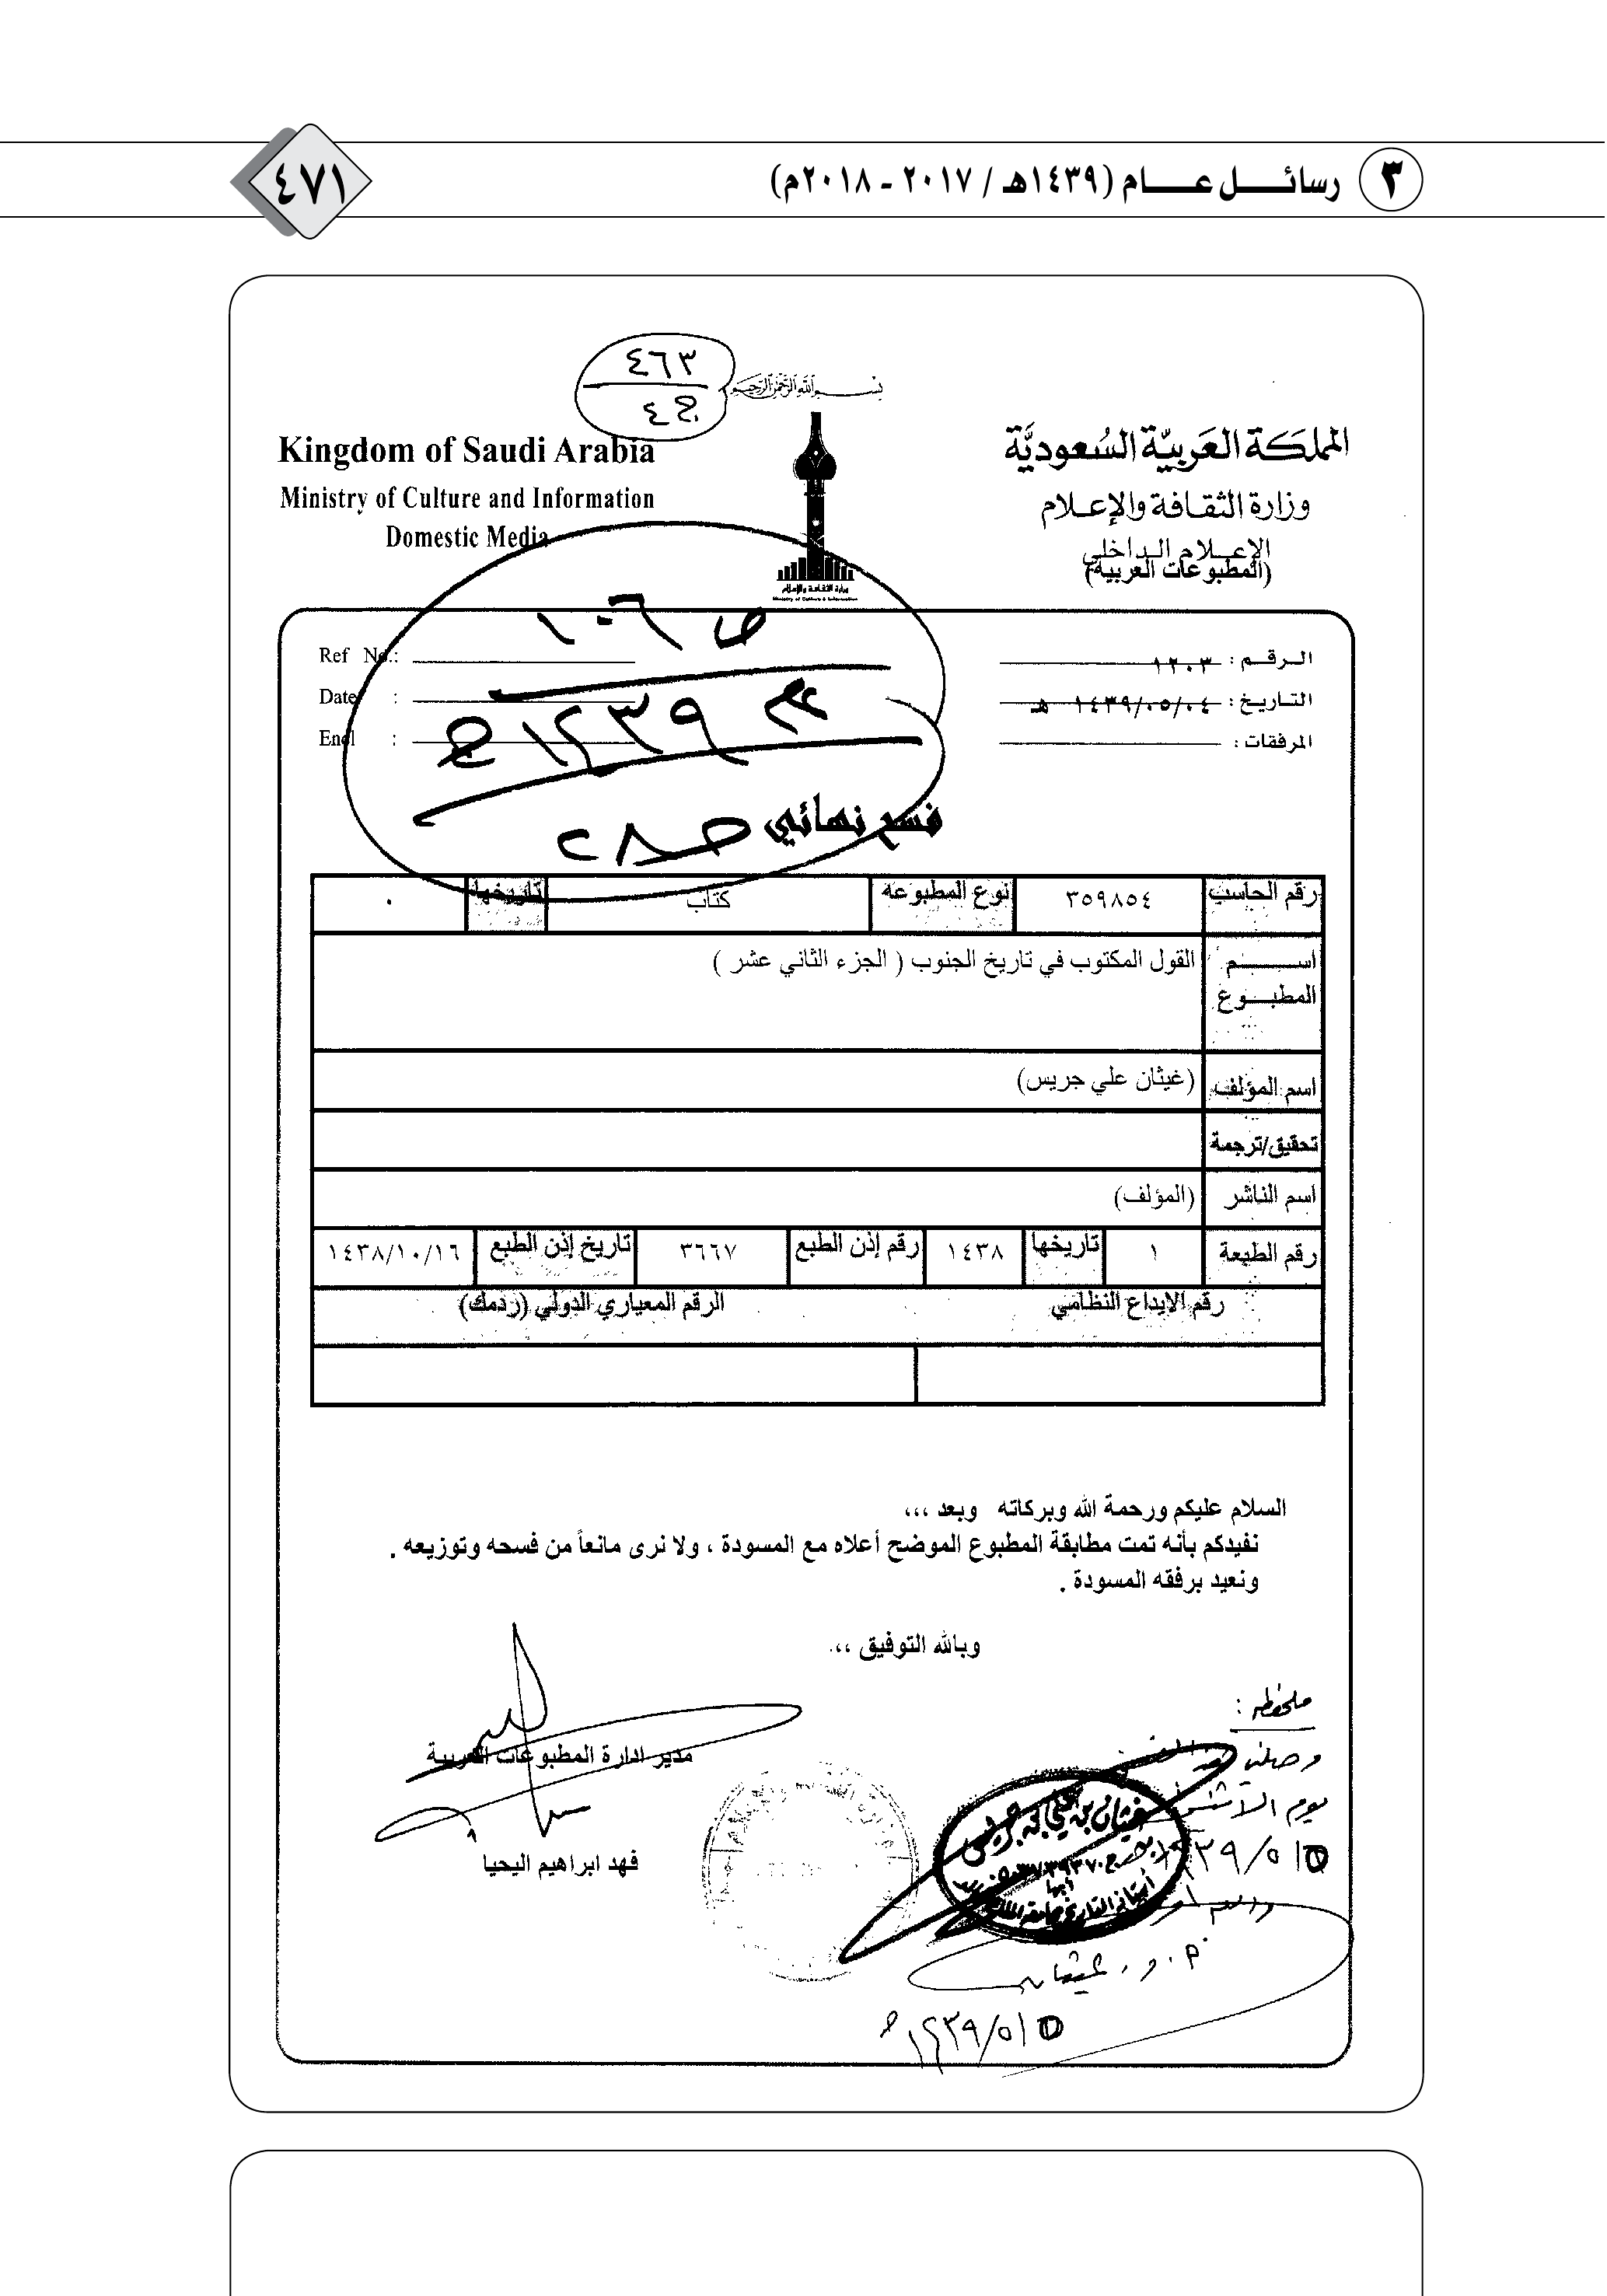 ٣ رسائل عام (١٤٣٩هـ / ٢٠١٧ - ٢٠١٨م)
٤٧١
٤٦٣
بسم الله الرحمن الرحيم
Kingdom of Saudi Arabia
Ministry of Culture and Information
Domestic Media
المملكة العربية السعودية
وزارة الثقافة والإعلام
الإعلام الداخلي
(المطبوعات العربية)
وزارة الثقافة والإعلام
Ministry of Culture & Information
الرقم : ١٢٠٣
التاريخ : ١٤٣٩/٠٥/٠٤ هـ
المرفقات :
Ref No.:
Date :
Encl :
ص ١٠٦
عام ١٤٣٩هـ
فسح نهائي
رقم الحاسب ٣٥٩٨٥٤ نوع المطبوعة كتاب تاريخها ٠
اسم المطبوع القول المكتوب في تاريخ الجنوب ( الجزء الثاني عشر )
اسم المؤلف (غيثان علي جريس)
تحقيق/ترجمة
اسم الناشر (المؤلف)
رقم الطبعة ١ تاريخها ١٤٣٨ رقم إذن الطبع ٣٦٦٧ تاريخ إذن الطبع ١٤٣٨/١٠/١٦
رقم الإيداع النظامي الرقم المعياري الدولي (ردمك)
السلام عليكم ورحمة الله وبركاته وبعد ،،،
نفيدكم بأنه تمت مطابقة المطبوع الموضح أعلاه مع المسودة ، ولا نرى مانعاً من فسحه وتوزيعه .
ونعيد برفقه المسودة .
وبالله التوفيق ،،،
مدير ادارة المطبوعات العربية
فهد ابراهيم اليحيا
ملحوظه :
يوم الاثنين
غيثان بن علي بن جريس
غيثان